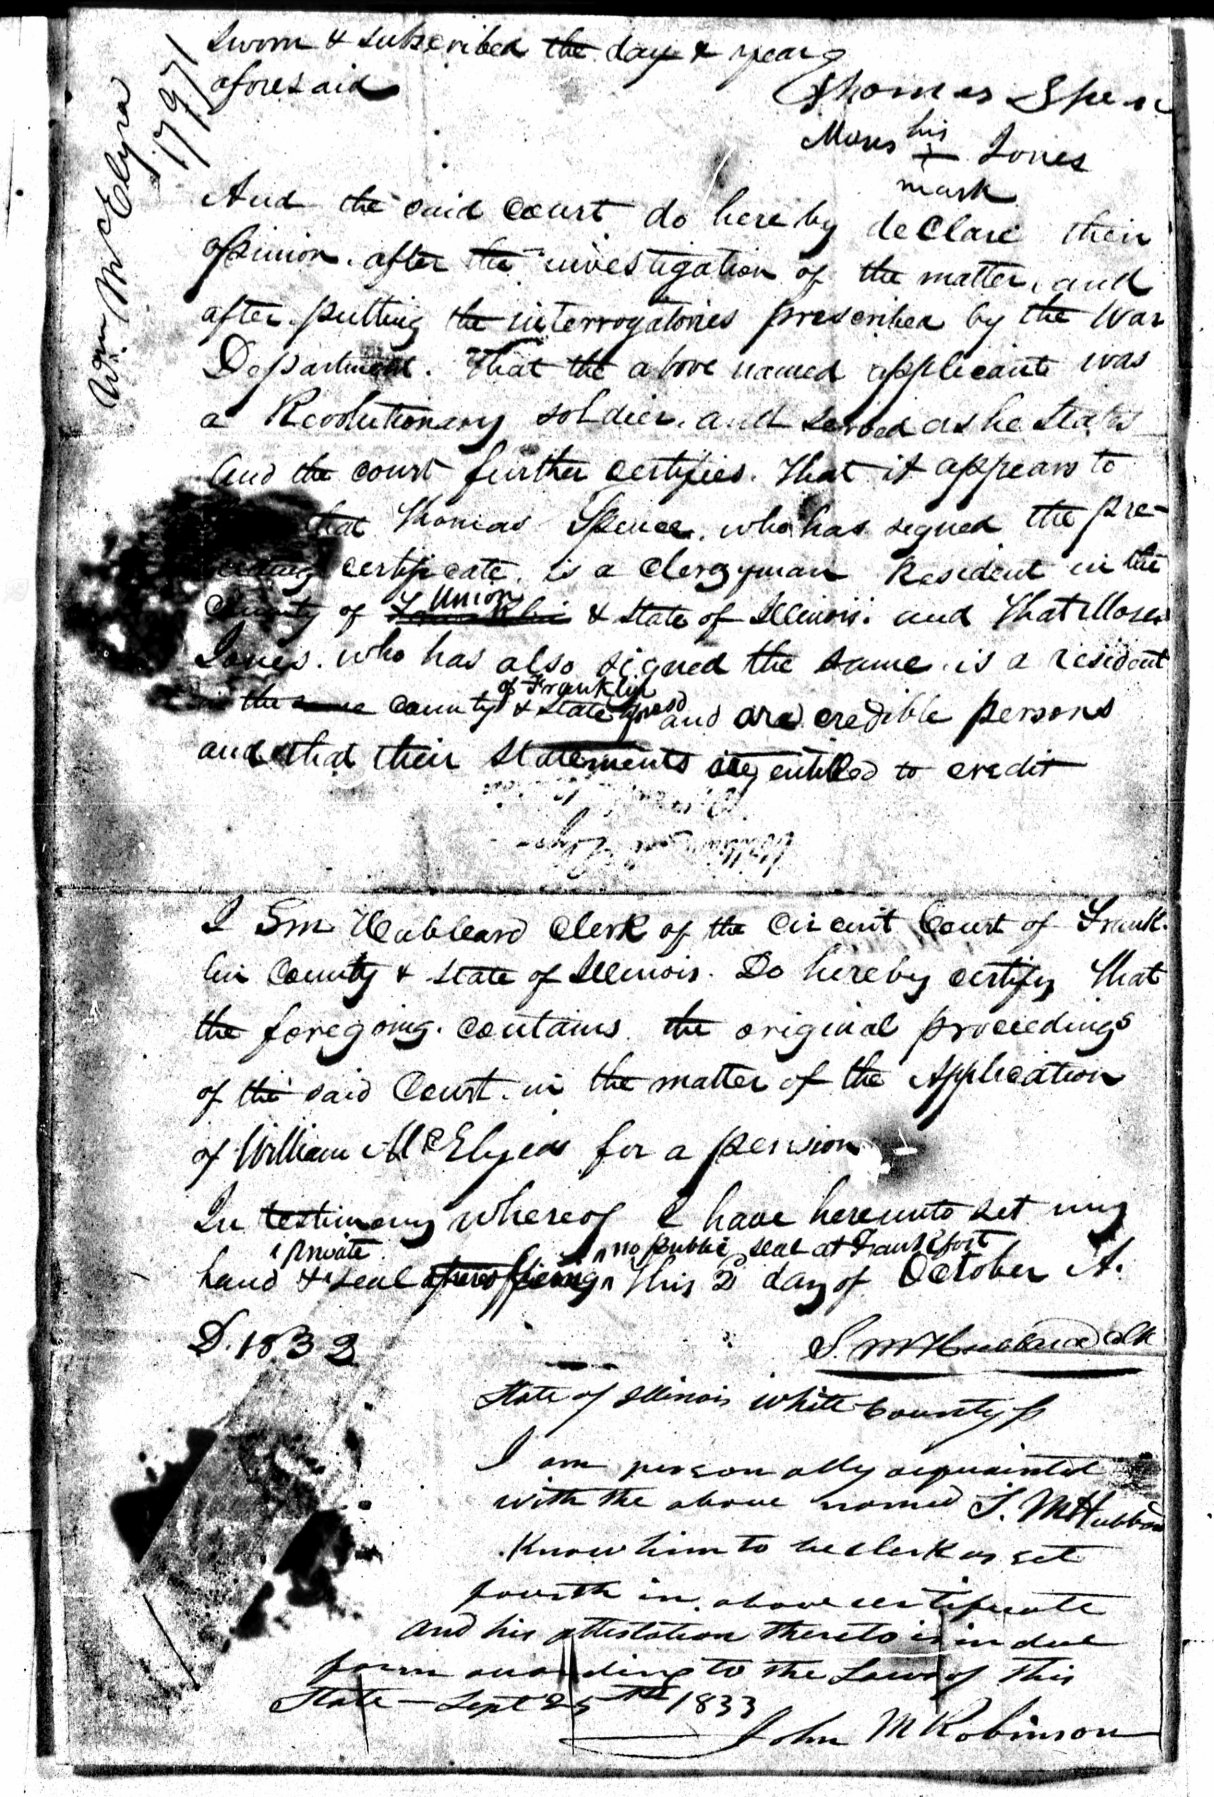 Wm McElyea
17971
Sworn & subscribed the day & year
aforesaid
Thomas Spence
Moses his Jones
mark
And the said Court do hereby declare their
opinion. after the investigation of the matter, and
after putting the interrogatories prescribed by the War
Department. That the above named applicant was
a Revolutionary soldier. and served as he states
And the court further certifies. That it appears to
that Thomas Spence. who has signed the pre-
certificate. is a clergyman Resident in the
County of Union & State of Illinois. and That Moses
Jones. who has also signed the same. is a resident
in the same county of Franklin & State aforesd and are credible persons
and that their statements are entitled to credit
I Sm Hubbard Clerk of the Circuit Court of Frank-
lin County & state of Illinois. Do hereby certify That
the foregoing. contains. the original proceedings
of the said Court. in the matter of the Application
of William McElyea for a pension
In testimony whereof I have hereunto set my
hand & private seal no public seal at Frankfort This 2 day of October A.
D. 1832
S. M Hubbard Clk
State of Illinois White County ss
I am personally acquainted
with the above named S. M Hubbard
Know him to be clerk as set
fourth in above certificate
and his attestation thereto is in due
form according to the Laws of This
State - Sept 25th 1833
John M Robinson